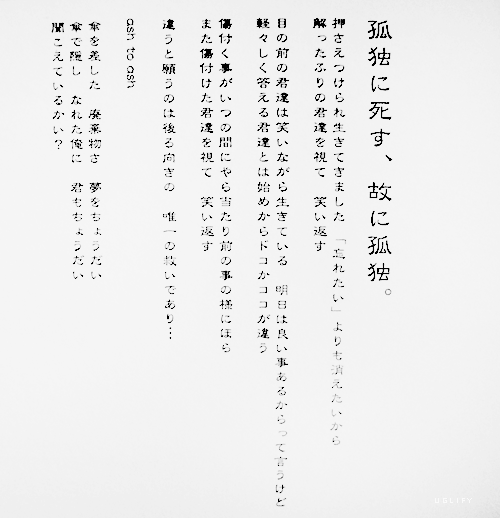 孤独に死す、故に孤独。
押さえつけられ生きてきました 「忘れたい」よりも消えたいから
解ったふりの君達を視て 笑い返す
目の前の君達は笑いながら生きている 明日は良い事あるからって言うけど
軽々しく答える君達とは始めからドコかココが違う
傷付く事がいつの間にやら当たり前の事の様にほら
また傷付けた君達を視て 笑い返す
違うと願うのは後ろ向きの 唯一の救いであり…
ash to ash
傘を差した 廃棄物さ 夢をちょうだい
傘で隠し なれた俺に 君もちょうだい
聞こえているかい？